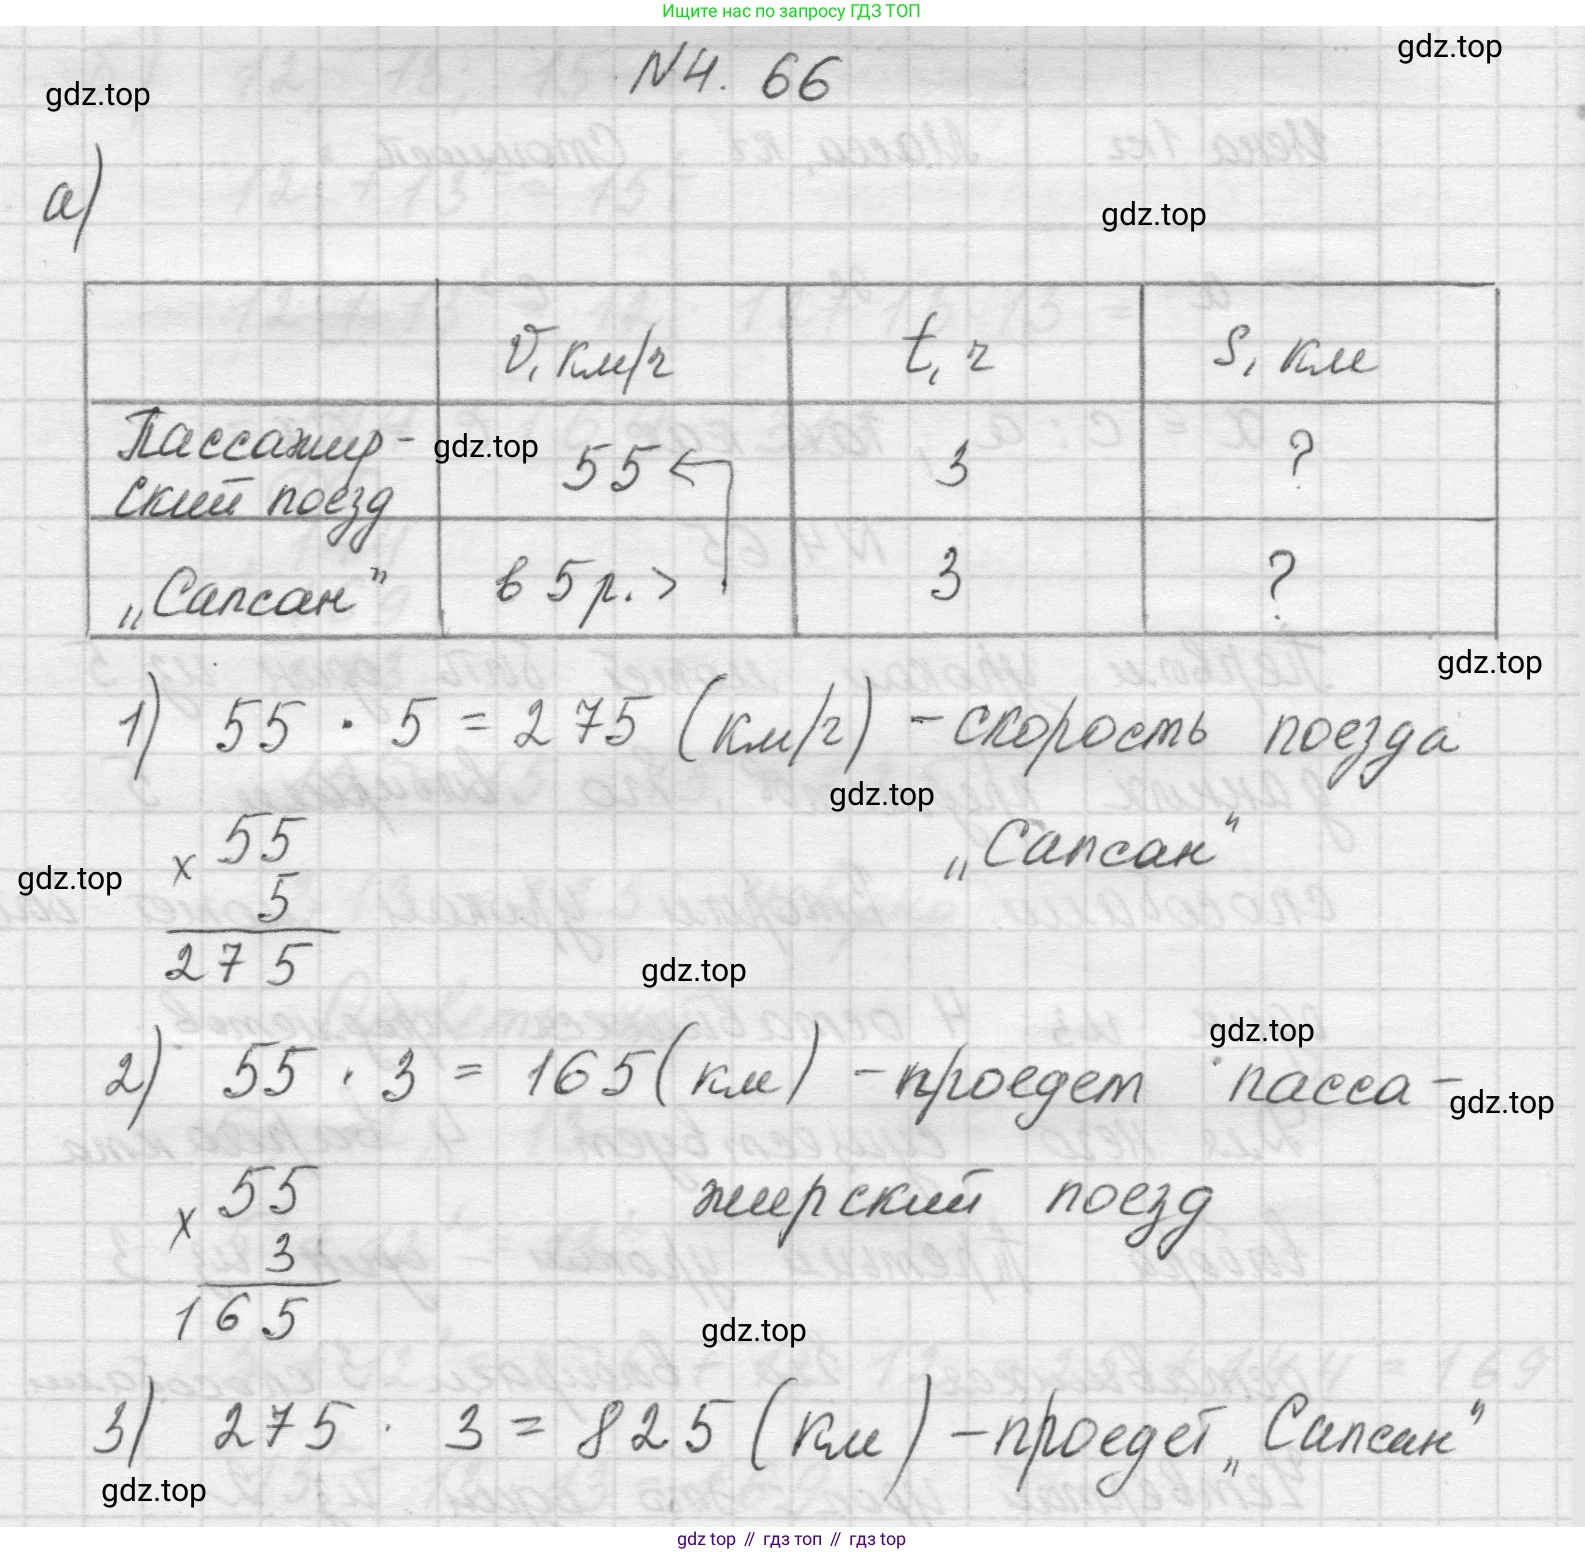 Ищите нас по запросу ГДЗ ТОП
N4. 66
gdz.top
gdz.top
а)
gdz.top
v, км/ч t, ч s, км
Пассажир-
ский поезд 55 3 ?
gdz.top
„Сапсан" в 5 р. > 3 ?
gdz.top
1) 55 · 5 = 275 (км/ч) - скорость поезда
gdz.top
„Сапсан"
× 55
5
275
gdz.top
gdz.top
gdz.top
2) 55 · 3 = 165 (км) - проедет пасса-
gdz.top
жирский поезд
× 55
3
165
gdz.top
3) 275 · 3 = 825 (км) - проедет „Сапсан"
gdz.top
gdz top // гдз топ // гдз top